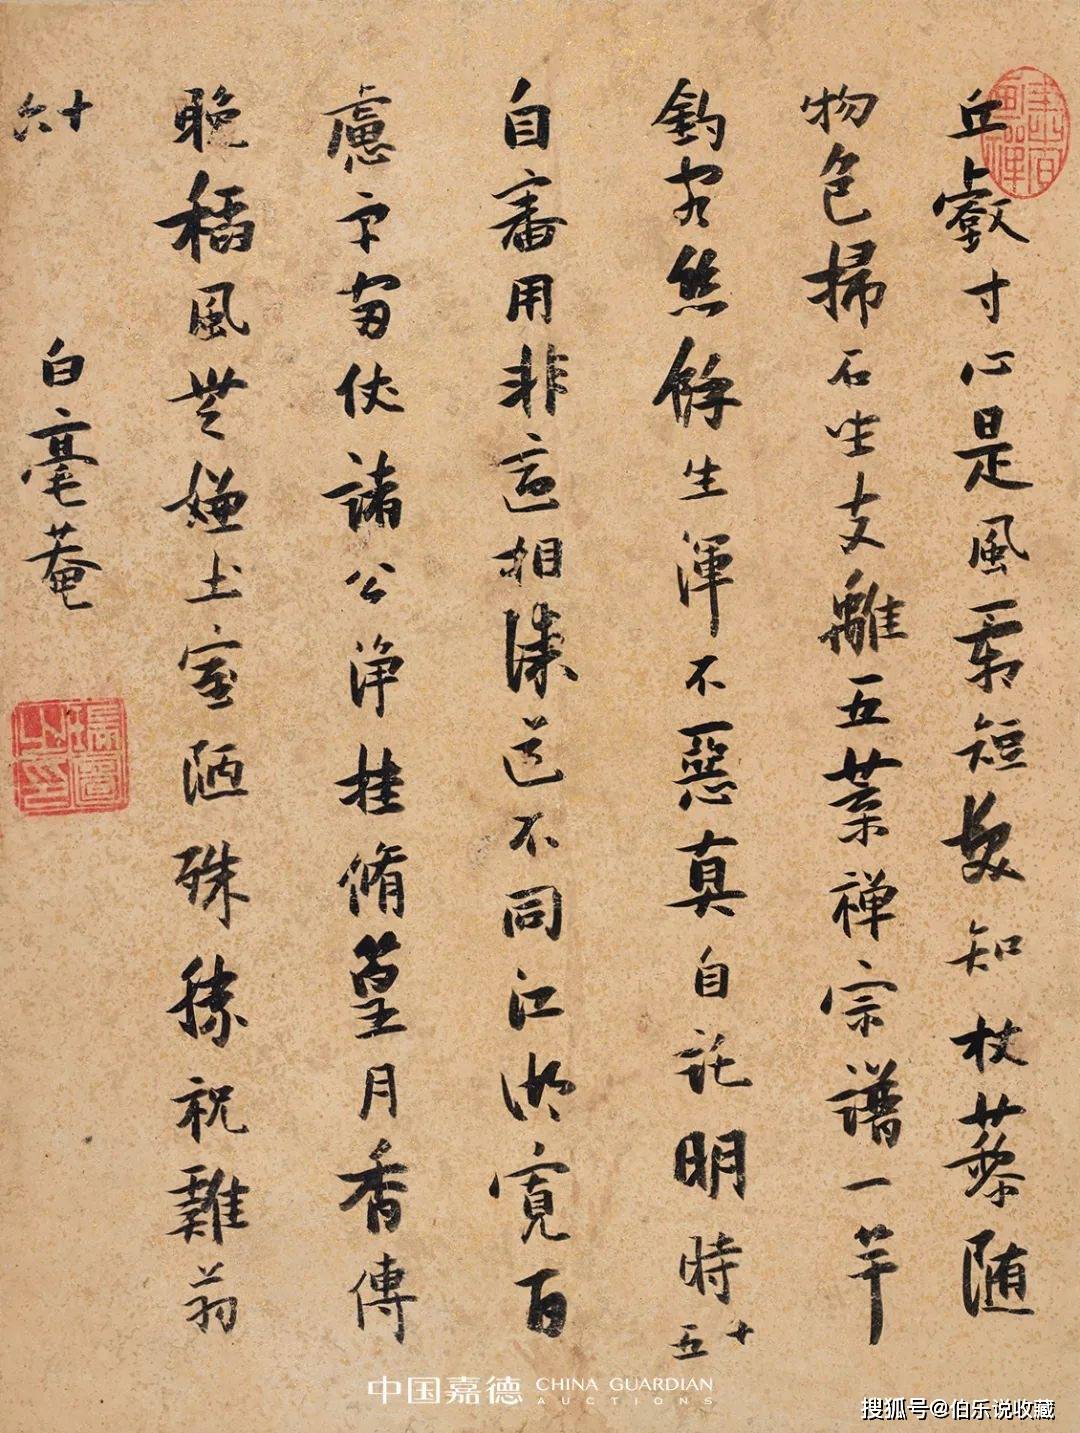 丘壑寸心是風霜短髮知杖藜随
物色掃石坐支離五葉禅宗譜一竿
釣客絲餘生渾不惡真自託明時 十五
自審用非適相謀道不同江湖寬百
慮宇宙仗諸公净挂脩篁月香傳
晚稻風無嫌土室陋殊勝祝雞翁
十六
白毫菴
瑞圖之印
中国嘉德 CHINA GUARDIAN
AUCTIONS
搜狐号@伯乐说收藏